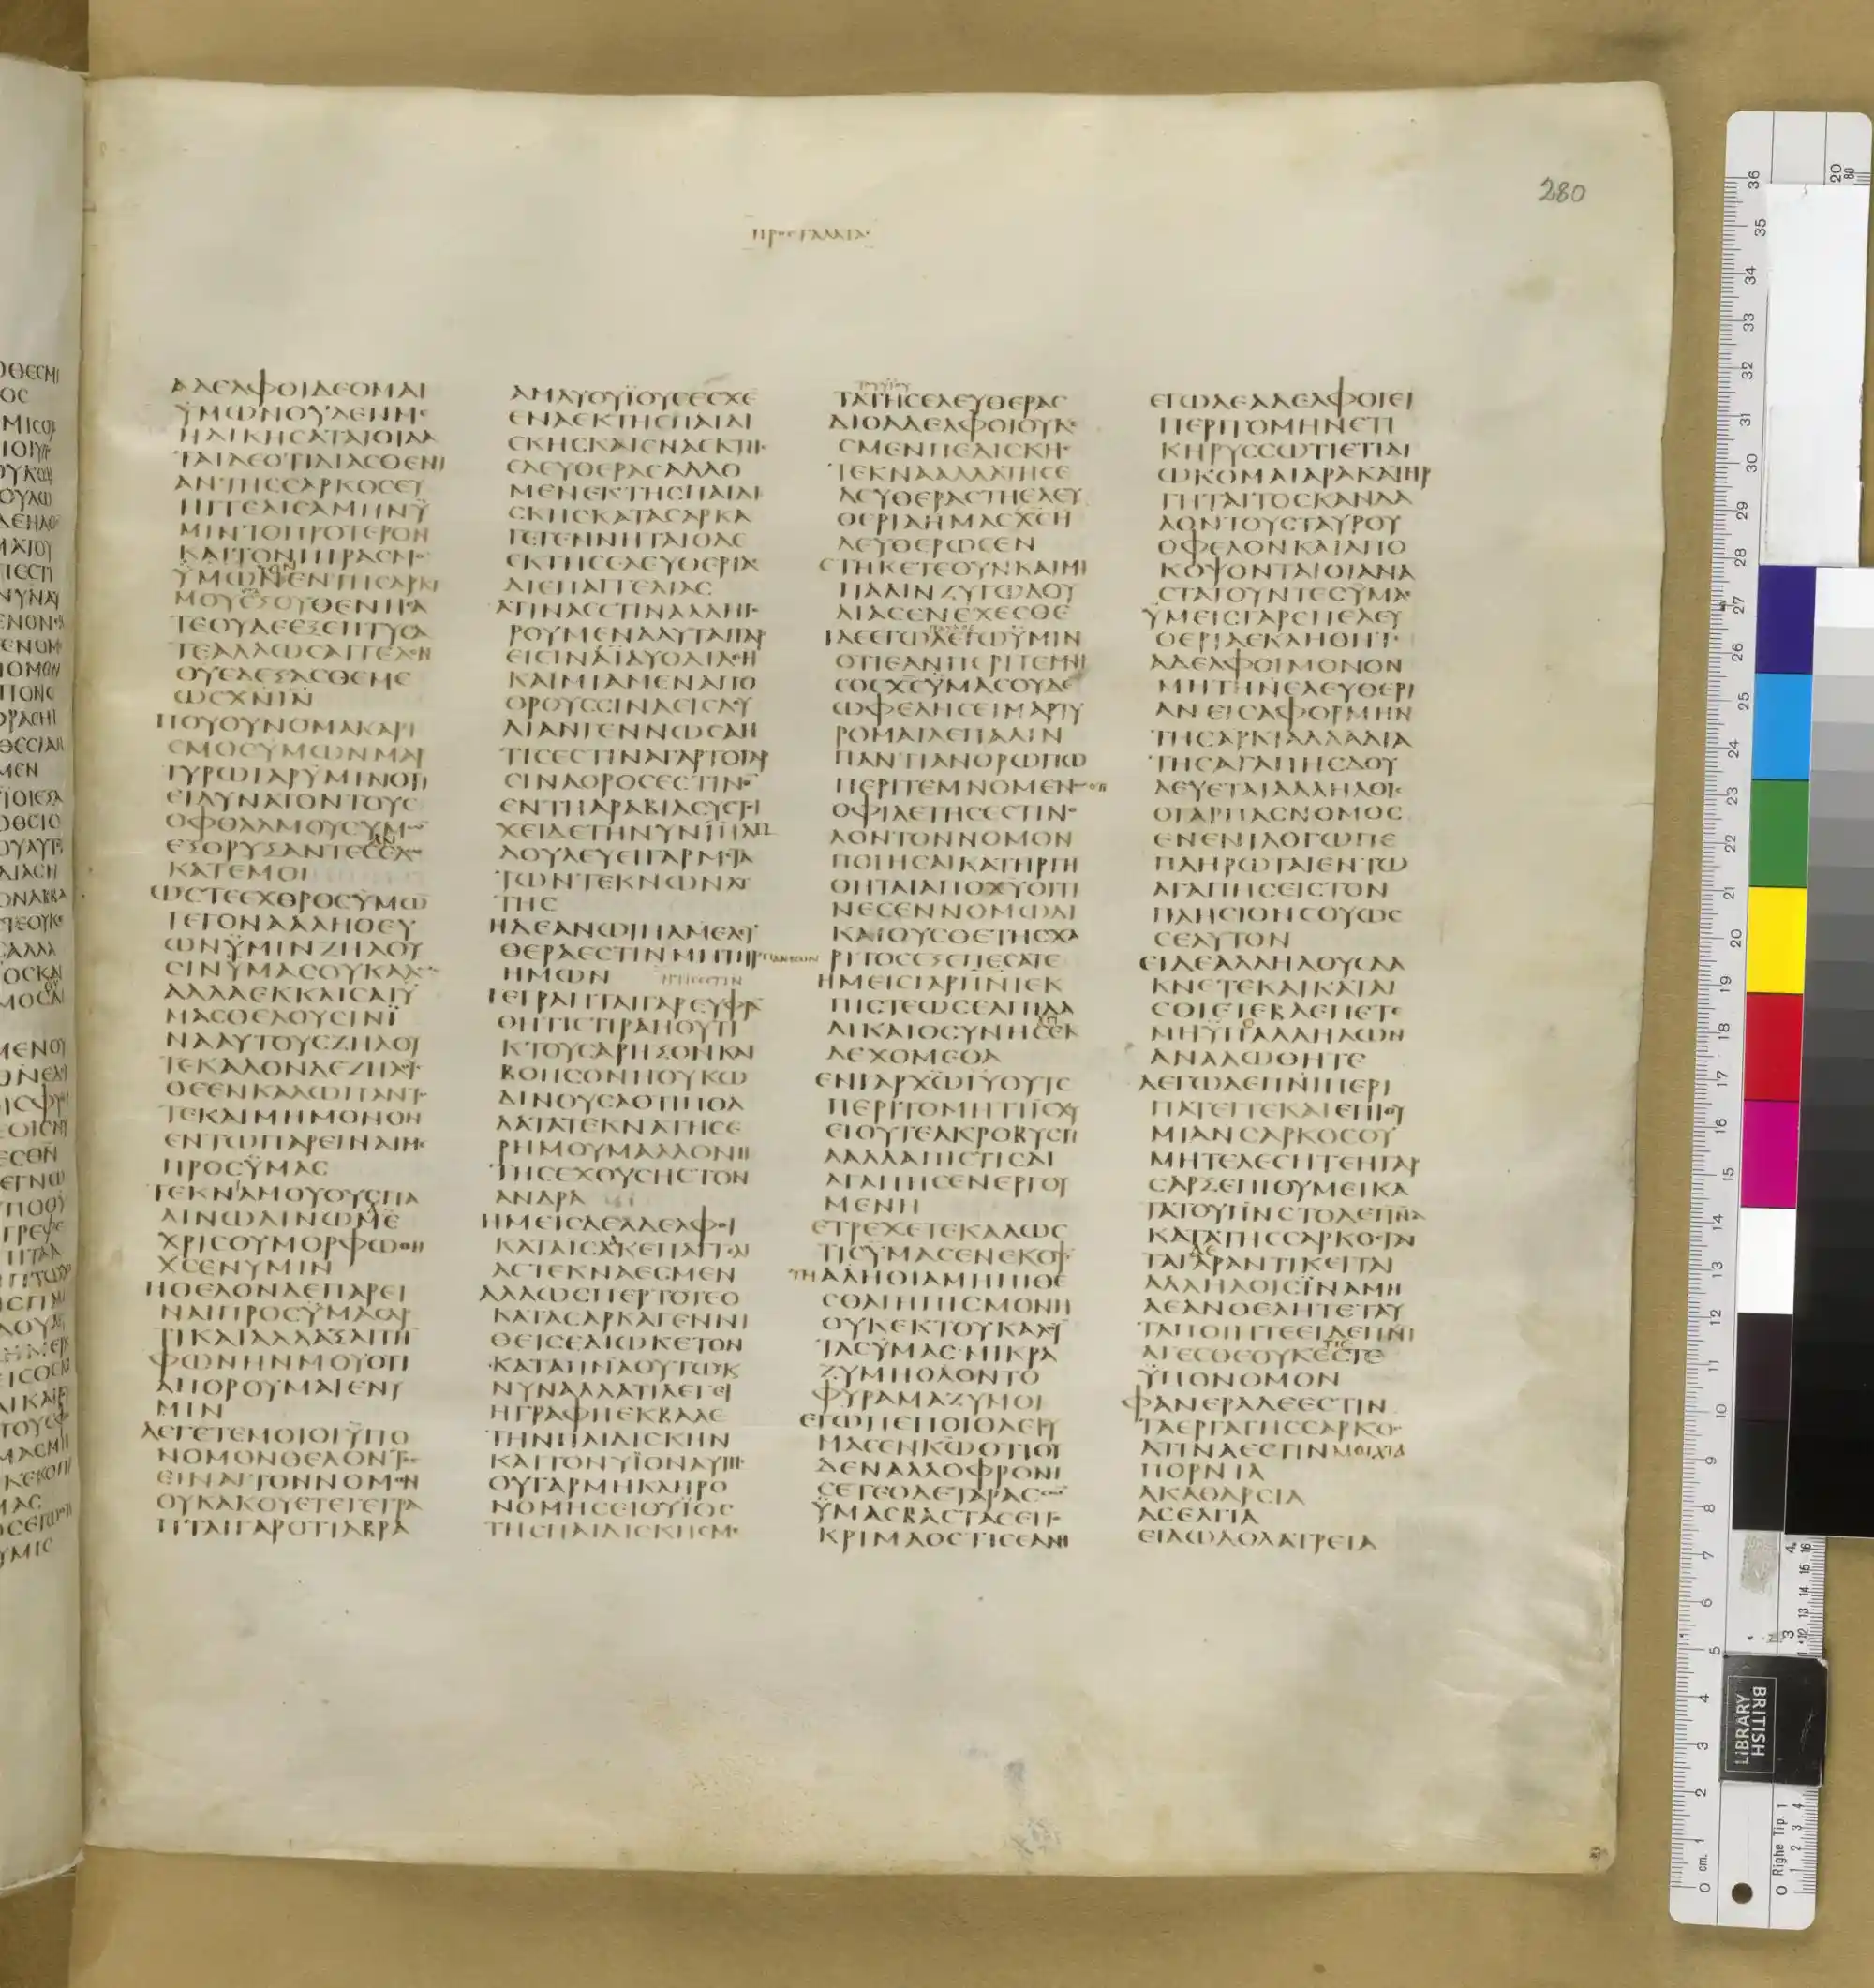 ΠΡΟϹ ΓΑΛΑΤΑϹ
280
ΑΔΕΛΦΟΙΔΕΟΜΑΙ
ΫΜΩΝΟΥΔΕΝΜΕ
ΗΔΙΚΗϹΑΤΑΙΟΙΔΑ
ΤΑΙΔΕΟΤΙΔΙΑϹΘΕΝΙ
ΑΝΤΗϹϹΑΡΚΟϹΕΥ
ΗΓΓΕΛΙϹΑΜΗΝΫ
ΜΙΝΤΟΠΡΟΤΕΡΟΝ
ΚΑΙΤΟΝΠΙΡΑϹΜΟ
ΫΜΩΝΕΝΤΗϹΑΡΚΙ
ΜΟΥΕΞΟΥΘΕΝΗϹΑ
ΤΕΟΥΔΕΕΞΕΠΤΥϹΑ
ΤΕΑΛΛΩϹΑΓΓΕΛΟΝ
ΘΥΕΔΕΞΑϹΘΕΜΕ
ΩϹΧΝΙΝ
ΠΟΥΟΥΝΟΜΑΚΑΡΙ
ϹΜΟϹΥΜΩΝΜΑΡ
ΤΥΡΩΓΑΡΫΜΙΝΟΤΙ
ΕΙΔΥΝΑΤΟΝΤΟΥϹ
ΟΦΘΑΛΜΟΥϹΥΜΩ
ΕΞΟΡΥΞΑΝΤΕϹΕΔΩ
ΚΑΤΕΜΟΙ
ΩϹΤΕΕΧΘΡΟϹΥΜΩ
ΓΕΓΟΝΑΑΛΗΘΕΥ
ΩΝΫΜΙΝΖΗΛΟΥ
ϹΙΝΫΜΑϹΟΥΚΑΛΩϹ
ΑΛΛΑΕΚΚΛΙϹΑΙΫ
ΜΑϹΘΕΛΟΥϹΙΝΪ
ΝΑΑΥΤΟΥϹΖΗΛΟΥ
ΤΕΚΑΛΟΝΔΕΖΗΛΟΥ
ϹΘΕΕΝΚΑΛΩΠΑΝΤΟ
ΤΕΚΑΙΜΗΜΟΝΟΝ
ΕΝΤΩΠΑΡΕΙΝΑΙΜΕ
ΠΡΟϹΫΜΑϹ
ΤΕΚΝΑΜΟΥΟΥϹΠΑ
ΛΙΝΩΔΙΝΩΜΕ
ΧΡΙϹΟΥΜΟΡΦΩΘΗ
ΧϹΕΝΥΜΙΝ
ΗΘΕΛΟΝΔΕΠΑΡΕΙ
ΝΑΙΠΡΟϹΫΜΑϹΑΡ
ΤΙΚΑΙΑΛΛΑΞΑΙΤΗ
ΦΩΝΗΝΜΟΥΟΤΙ
ΑΠΟΡΟΥΜΑΙΕΝΥ
ΜΙΝ
ΛΕΓΕΤΕΜΟΙΟΙΫΠΟ
ΝΟΜΟΝΘΕΛΟΝΤΕϹ
ΕΙΝΑΙΤΟΝΝΟΜΟΝ
ΟΥΚΑΚΟΥΕΤΕΓΕΓΡΑ
ΠΤΑΙΓΑΡΟΤΙΑΒΡΑ
ΑΜΔΥΟΥΪΟΥϹΕϹΧΕ
ΕΝΑΕΚΤΗϹΠΑΙΔΙ
ϹΚΗϹΚΑΙΕΝΑΕΚΤΗϹ
ΕΛΕΥΘΕΡΑϹΑΛΛΟ
ΜΕΝΕΚΤΗϹΠΑΙΔΙ
ϹΚΗϹΚΑΤΑϹΑΡΚΑ
ΓΕΓΕΝΝΗΤΑΙΟΔΕ
ΕΚΤΗϹΕΛΕΥΘΕΡΑϹ
ΔΙΕΠΑΓΓΕΛΙΑϹ
ΑΤΙΝΑΕϹΤΙΝΑΛΛΗΓΟ
ΡΟΥΜΕΝΑΑΥΤΑΙΓΑΡ
ΕΙϹΙΝΑΙΔΥΟΔΙΑΘΗ
ΚΑΙΜΙΑΜΕΝΑΠΟ
ΟΡΟΥϹϹΙΝΑΕΙϹΔΟΥ
ΛΙΑΝΓΕΝΝΩϹΑΗ
ΤΙϹΕϹΤΙΝΑΓΑΡΤΟΓΑΡ
ϹΙΝΑΟΡΟϹΕϹΤΙΝ
ΕΝΤΗΑΡΑΒΙΑϹΥϹΤΟΙ
ΧΕΙΔΕΤΗΝΥΝΪΗΛΜ
ΔΟΥΛΕΥΕΙΓΑΡΜΕΤΑ
ΤΩΝΤΕΚΝΩΝΑΥ
ΤΗϹ
ΗΔΕΑΝΩΪΗΛΜΕΛΕΥ
ΘΕΡΑΕϹΤΙΝΜΗΤΗΡ
ΗΜΩΝ
ΓΕΓΡΑΠΤΑΙΓΑΡΕΥΦΡΑ
ΘΗΤΙϹΤΙΡΑΗΟΥΤΙ
ΚΤΟΥϹΑΡΗΞΟΝΚΑΙ
ΒΟΗϹΟΝΗΟΥΚΩ
ΔΙΝΟΥϹΑΟΤΙΠΟΛ
ΛΑΤΑΤΕΚΝΑΤΗϹΕ
ΡΗΜΟΥΜΑΛΛΟΝΗ
ΤΗϹΕΧΟΥϹΗϹΤΟΝ
ΑΝΔΡΑ
ΗΜΕΙϹΔΕΑΔΕΛΦΟΙ
ΚΑΤΑΪϹΑΚΕΠΑΓΓΕΛΙ
ΑϹΤΕΚΝΑΕϹΜΕΝ
ΑΛΛΩϹΠΕΡΤΟΤΕΟ
ΚΑΤΑϹΑΡΚΑΓΕΝΝΗ
ΘΕΙϹΕΔΙΩΚΕΤΟΝ
ΚΑΤΑΠΝΑΟΥΤΩΚ
ΝΥΝΑΛΛΑΤΙΛΕΓΕΙ
ΗΓΡΑΦΗΕΚΒΑΛΕ
ΤΗΝΠΑΙΔΙϹΚΗΝ
ΚΑΙΤΟΝΥΪΟΝΑΥΤΗϹ
ΟΥΓΑΡΜΗΚΛΗΡΟ
ΝΟΜΗϹΕΙΟΥΪΟϹ
ΤΗϹΠΑΙΔΙϹΚΗϹΜΕ
ΤΑΤΗϹΕΛΕΥΘΕΡΑϹ
ΔΙΟΑΔΕΛΦΟΙΟΥΚΕ
ϹΜΕΝΠΕΔΙϹΚΗϹ
ΤΕΚΝΑΑΛΛΑΤΗϹΕ
ΛΕΥΘΕΡΑϹΤΗΕΛΕΥ
ΘΕΡΙΑΗΜΑϹΧϹΗ
ΛΕΥΘΕΡΩϹΕΝ
ϹΤΗΚΕΤΕΟΥΝΚΑΙΜΗ
ΠΑΛΙΝΖΥΓΩΔΟΥ
ΛΙΑϹΕΝΕΧΕϹΘΕ
ΙΔΕΕΓΩΛΕΓΩΫΜΙΝ
ΟΤΙΕΑΝΠΕΡΙΤΕΜΝΗ
ϹΘΕΧϹΫΜΑϹΟΥΔΕ
ΩΦΕΛΗϹΕΙΜΑΡΤΥ
ΡΟΜΑΙΔΕΠΑΛΙΝ
ΠΑΝΤΙΑΝΘΡΩΠΩ
ΠΕΡΙΤΕΜΝΟΜΕΝΩΟΤΙ
ΟΦΙΛΕΤΗϹΕϹΤΙΝΟ
ΛΟΝΤΟΝΝΟΜΟΝ
ΠΟΙΗϹΑΙΚΑΤΗΡΓΗ
ΘΗΤΑΙΑΠΟΧΥΟΙΤΙ
ΝΕϹΕΝΝΟΜΩΔΙ
ΚΑΙΟΥϹΘΕΤΗϹΧΑ
ΡΙΤΟϹΕΞΕΠΕϹΑΤΕ
ΗΜΕΙϹΓΑΡΠΝΙΕΚ
ΠΙϹΤΕΩϹΕΛΠΙΔΑ
ΔΙΚΑΙΟϹΥΝΗϹΕΚ
ΔΕΧΟΜΕΘΑ
ΕΝΓΑΡΧΩΙΥΟΥΤΕ
ΠΕΡΙΤΟΜΗΤΙΙϹΧΥ
ΕΙΟΥΤΕΑΚΡΟΒΥϹΤΙ
ΑΑΛΛΑΠΙϹΤΙϹΔΙ
ΑΓΑΠΗϹΕΝΕΡΓΟΥ
ΜΕΝΗ
ΕΤΡΕΧΕΤΕΚΑΛΩϹ
ΤΙϹΫΜΑϹΕΝΕΚΟΨΕ
ΑΛΗΘΙΑΜΗΠΙΘΕ
ϹΘΑΙΗΠΙϹΜΟΝΗ
ΟΥΚΕΚΤΟΥΚΑΛΟΥ
ΤΑϹΫΜΑϹΜΙΚΡΑ
ΖΥΜΗΟΛΟΝΤΟ
ΦΥΡΑΜΑΖΥΜΟΙ
ΕΓΩΠΕΠΟΙΘΑΕΙϹΥ
ΜΑϹΕΝΚΩΟΤΙΟΥ
ΔΕΝΑΛΛΟΦΡΟΝΗ
ϹΕΤΕΟΔΕΤΑΡΑϹϹΩ
ΫΜΑϹΒΑϹΤΑϹΕΙΤΟ
ΚΡΙΜΑΟϹΤΙϹΕΑΝΗ
ΕΓΩΔΕΑΔΕΛΦΟΙΕΙ
ΠΕΡΙΤΟΜΗΝΕΤΙ
ΚΗΡΥϹϹΩΤΙΕΤΙΔΙ
ΩΚΟΜΑΙΑΡΑΚΑΤΗΡ
ΓΗΤΑΙΤΟϹΚΑΝΔΑ
ΛΟΝΤΟΥϹΤΑΥΡΟΥ
ΟΦΕΛΟΝΚΑΙΑΠΟ
ΚΟΨΟΝΤΑΙΟΙΑΝΑ
ϹΤΑΤΟΥΝΤΕϹΥΜΑϹ
ΫΜΕΙϹΓΑΡΕΠΕΛΕΥ
ΘΕΡΙΑΕΚΛΗΘΗΤΕ
ΑΔΕΛΦΟΙΜΟΝΟΝ
ΜΗΤΗΝΕΛΕΥΘΕΡΙ
ΑΝΕΙϹΑΦΟΡΜΗΝ
ΤΗϹΑΡΚΙΑΛΛΑΔΙΑ
ΤΗϹΑΓΑΠΗϹΔΟΥ
ΛΕΥΕΤΑΙΑΛΛΗΛΟΙϹ
ΟΓΑΡΠΑϹΝΟΜΟϹ
ΕΝΕΝΙΛΟΓΩΠΕ
ΠΛΗΡΩΤΑΙΕΝΤΩ
ΑΓΑΠΗϹΕΙϹΤΟΝ
ΠΛΗϹΙΟΝϹΟΥΩϹ
ϹΕΑΥΤΟΝ
ΕΙΔΕΑΛΛΗΛΟΥϹΔΑ
ΚΝΕΤΕΚΑΙΚΑΤΑΙ
ϹΘΙΕΤΕΒΛΕΠΕΤΕ
ΜΗΫΠΑΛΛΗΛΩΝ
ΑΝΑΛΩΘΗΤΕ
ΛΕΓΩΔΕΠΝΙΠΕΡΙ
ΠΑΤΕΙΤΕΚΑΙΕΠΙΘΥ
ΜΙΑΝϹΑΡΚΟϹΟΥ
ΜΗΤΕΛΕϹΗΤΕΗΓΑΡ
ϹΑΡΞΕΠΙΘΥΜΕΙΚΑ
ΤΑΤΟΥΠΝϹΤΟΔΕΠΝΑ
ΚΑΤΑΤΗϹϹΑΡΚΟϹΤΑΥ
ΤΑΓΑΡΑΝΤΙΚΕΙΤΑΙ
ΑΛΛΗΛΟΙϹΪΝΑΜΗ
ΑΕΑΝΘΕΛΗΤΕΤΑΥ
ΤΑΠΟΙΗΤΕΕΙΔΕΠΝΙ
ΑΓΕϹΘΕΟΥΚΕϹΤΕ
ΫΠΟΝΟΜΟΝ
ΦΑΝΕΡΑΔΕΕϹΤΙΝ
ΤΑΕΡΓΑΤΗϹϹΑΡΚΟϹ
ΑΤΙΝΑΕϹΤΙΝΜΟΙΧΙΑ
ΠΟΡΝΙΑ
ΑΚΑΘΑΡϹΙΑ
ΑϹΕΛΓΙΑ
ΕΙΔΩΛΟΛΑΤΡΕΙΑ
BRITISH
LIBRARY